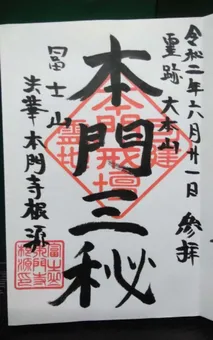 令和二年六月廿一日 參拝
霊跡 大本山
本門三秘
冨士山
法華本門寺根源